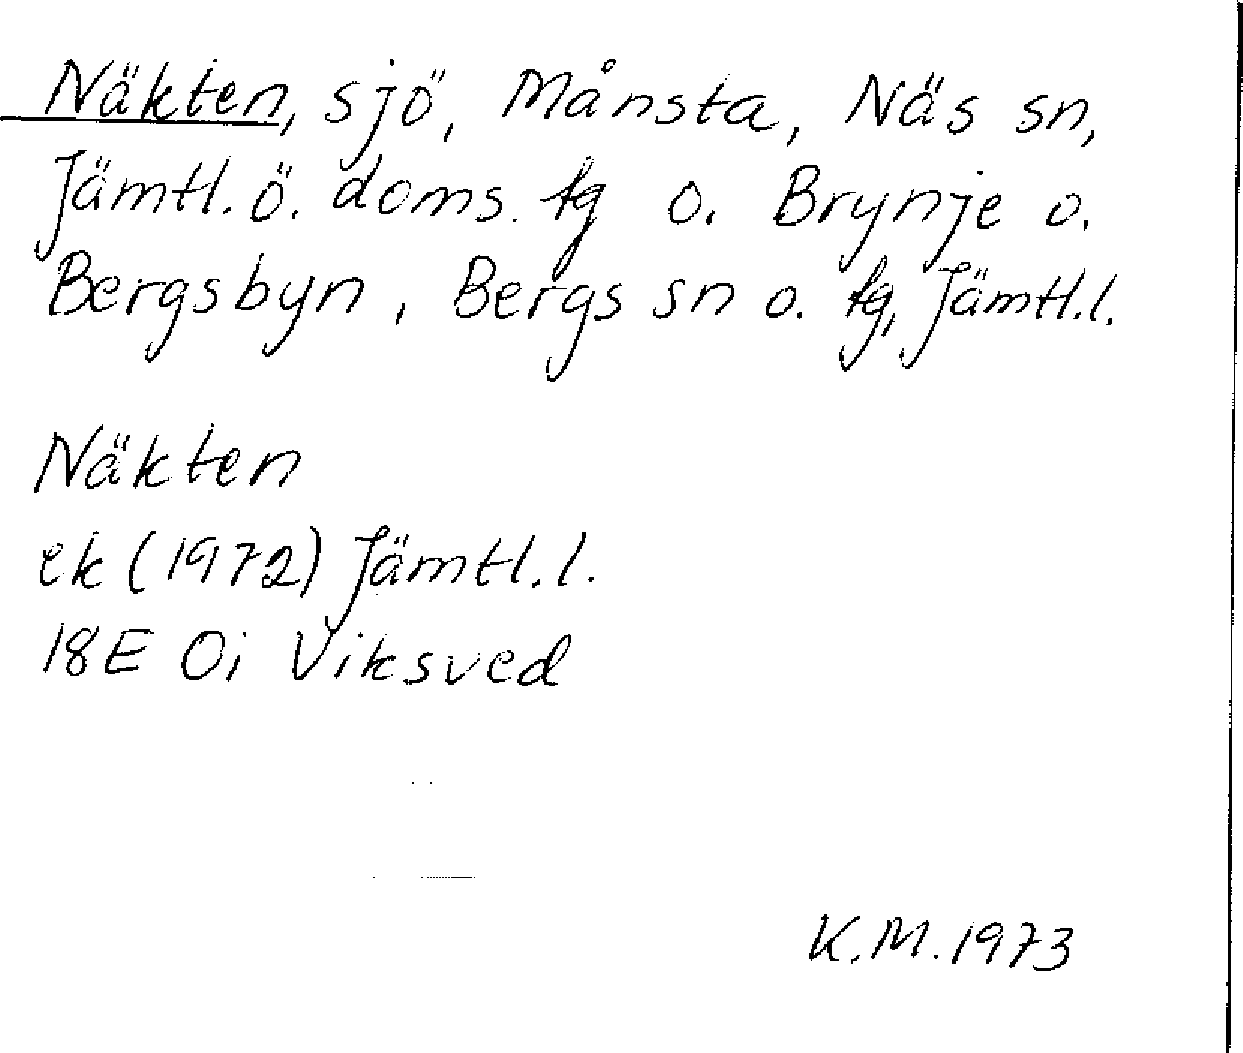 Näkten, sjö, Månsta, Näs sn,
Jämtl. ö. doms. tg o. Brynje o.
Bergsbyn, Bergs sn o. tg, Jämtl. l.
Näkten
ek (1972) Jämtl. l.
18E 0i Viksved
K.M. 1973